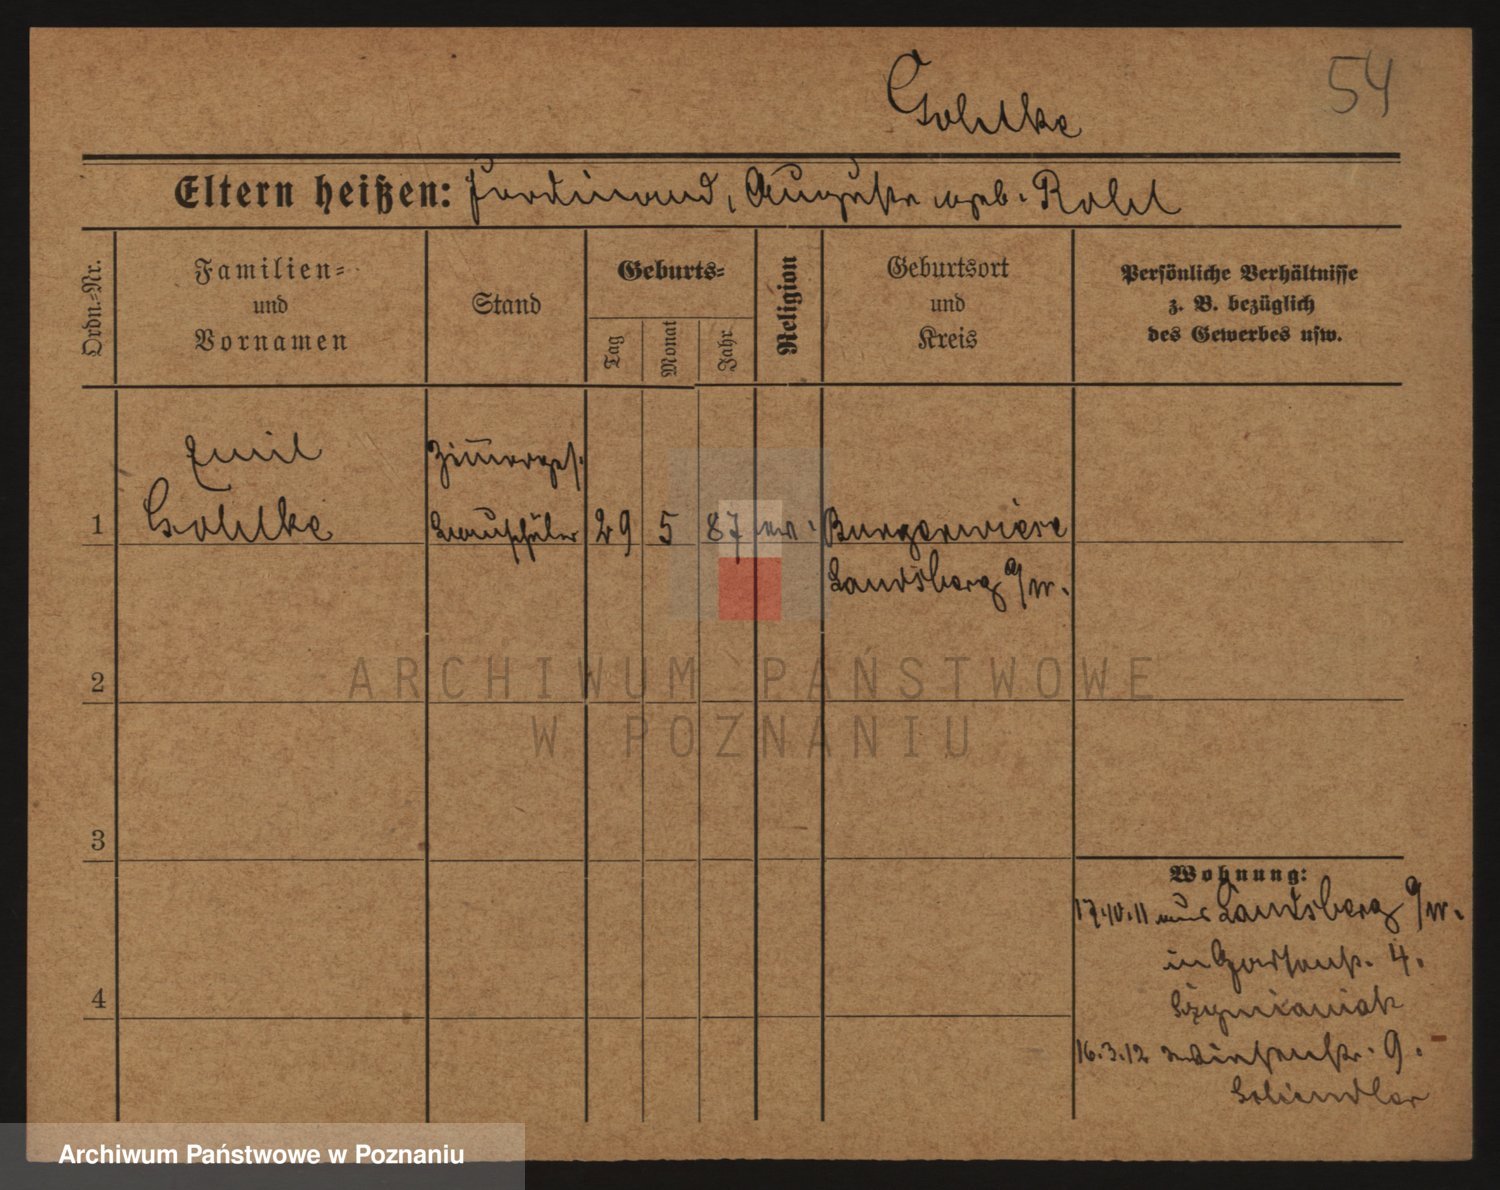 54
Gohlke
Eltern heißen: Ferdinand, Auguste geb. Rohl
Ordn.-Nr.
Familien-
und
Vornamen
Stand
Geburts-
Tag
Monat
Jahr
Religion
Geburtsort
und
Kreis
Persönliche Verhältnisse
z. B. bezüglich
des Gewerbes usw.
Emil
Zimmerges.
1 Gohlke Bauschüler 29 5 87 ev. Burgerwiese
Landsberg a/W.
2
3
4
Wohnung:
17.10.11 aus Landsberg a/W.
in 4.
16.3.12 9.
ARCHIWUM PAŃSTWOWE
W POZNANIU
Archiwum Państwowe w Poznaniu